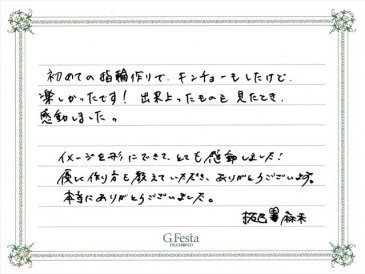 初めての指輪作りで、キンチョーもしたけど、
楽しかったです！出来上ったものを見たとき、
感動しました。
イメージを形にできて、とても感動しました！
優しく作り方を教えていただき、ありがとうございます。
本当にありがとうございました。
G.Festa
DIAMOND